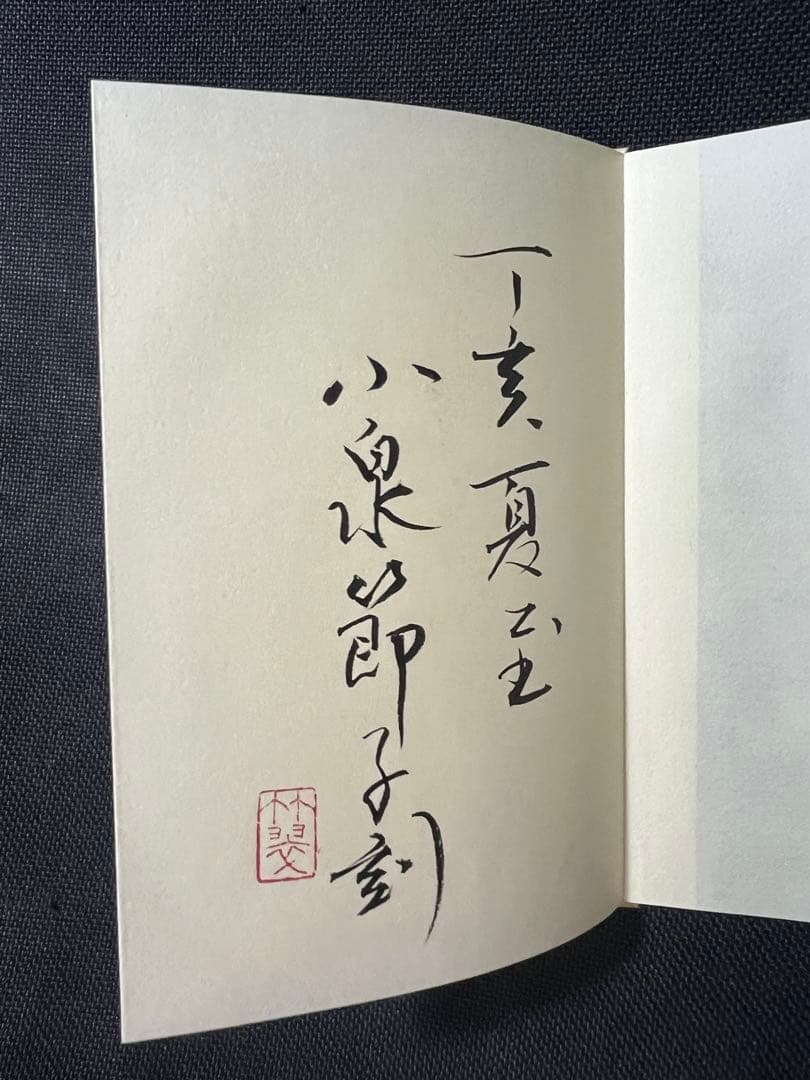 丁亥夏至
小泉節子刻